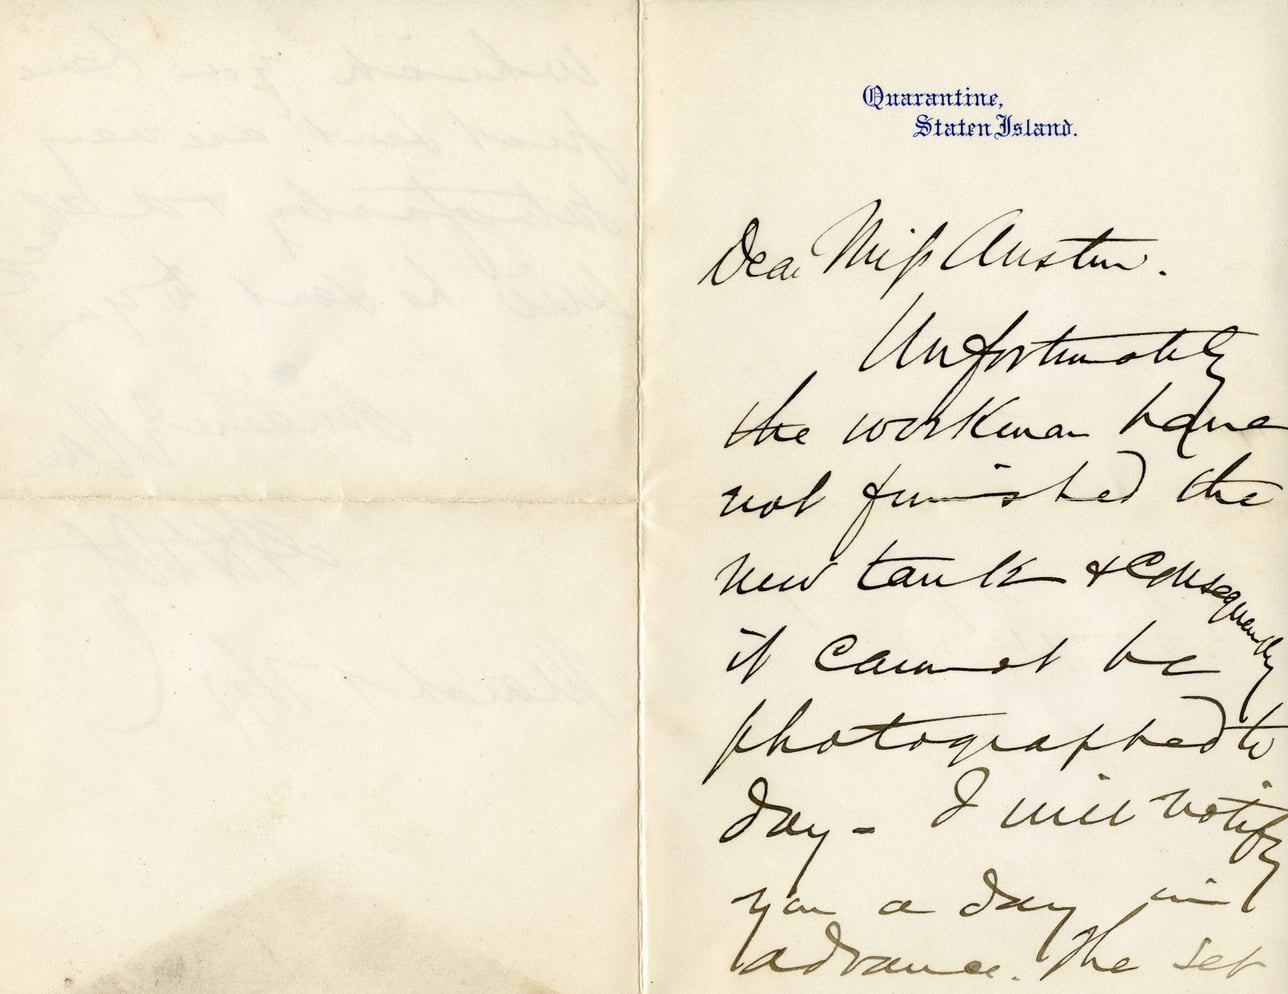 Quarantine,
Staten Island.
Dear Miss Austen.
Unfortunately
the workmen have
not finished the
new tank & consequently
it cannot be
photographed to
day - I will notify
you a day in
advance. The set